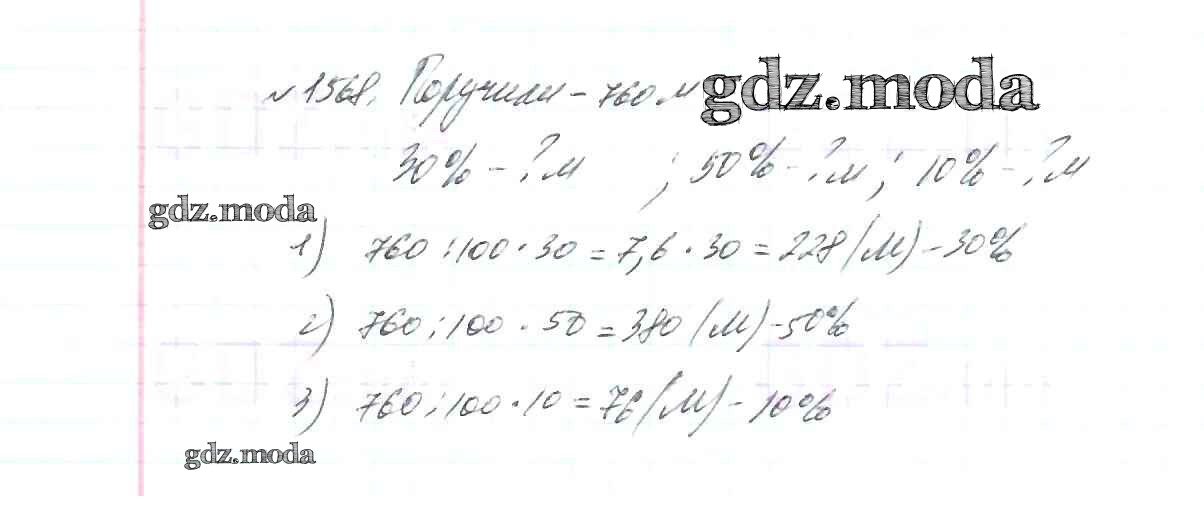 №1568. Поручили – 760 м gdz.moda
30% – ? м ; 50% – ? м ; 10% – ? м
gdz.moda
1) 760 : 100 · 30 = 7,6 · 30 = 228 (м) – 30%
2) 760 : 100 · 50 = 380 (м) – 50%
3) 760 : 100 · 10 = 76 (м) – 10%
gdz.moda